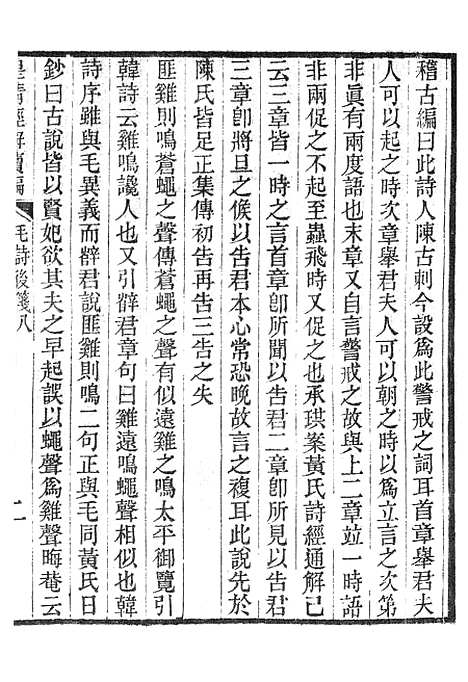 稽古編曰此詩人陳古刺今設爲此警戒之詞耳首章舉君夫
人可以起之時次章舉君夫人可以朝之時以爲立言之次第
非眞有兩度語也末章又自言警戒之故與上二章竝一時語
非兩促之不起至蟲飛時又促之也承珙案黃氏詩經通解已
云三章皆一時之言首章卽所聞以告君二章卽所見以告君
三章卽將旦之候以告君本心常恐晚故言之複耳此說先於
陳氏皆足正集傳初告再告三告之失
匪雞則鳴蒼蠅之聲傳蒼蠅之聲有似遠雞之鳴太平御覽引
韓詩云雞鳴讒人也又引薛君章句曰雞遠鳴蠅聲相似也韓
詩序雖與毛異義而薛君說匪雞則鳴二句正與毛同黃氏日
鈔曰古說皆以賢妃欲其夫之早起誤以蠅聲爲雞聲晦菴云
皇淸經解續編 毛詩後箋八 二